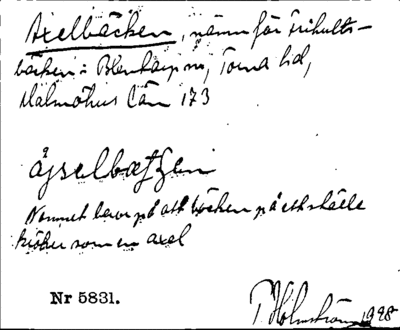 Axelbäcken, namn för Trihults-
bäcken i Blentarp sn, Torna hd,
Malmöhus län 173
åjselbæţʃen
Namnet beror på att bäcken på ett ställe
kröker som en axel
Nr 5831.
P. Holmström 1928